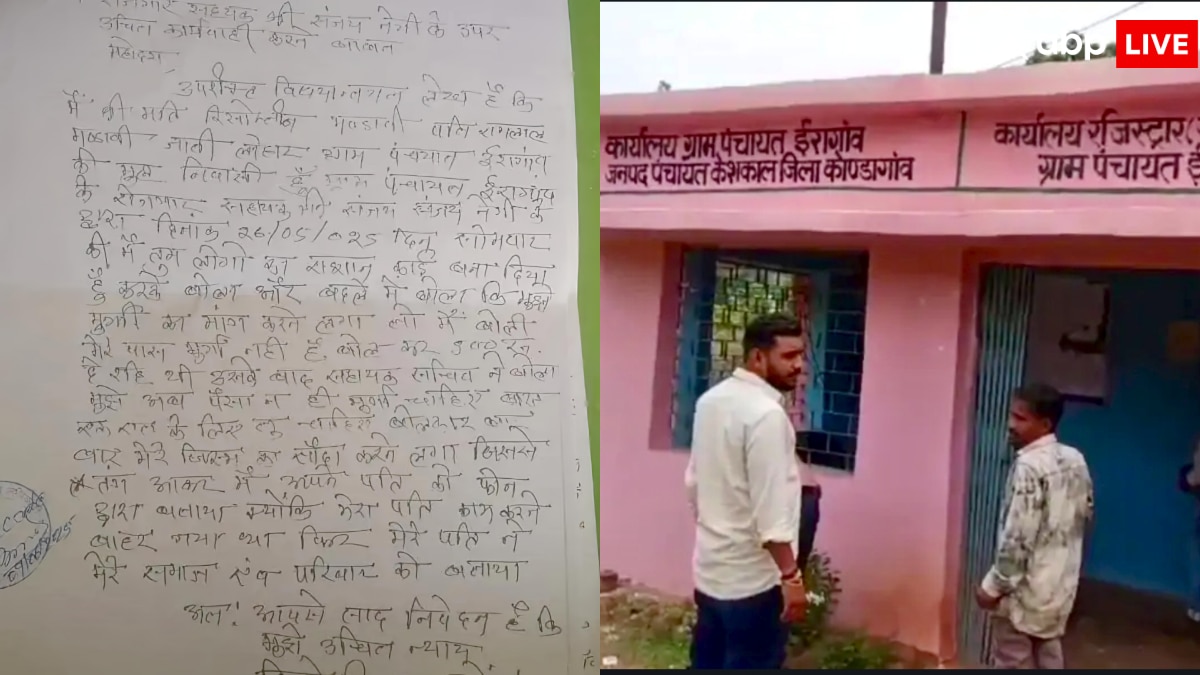 रोजगार सहायक श्री संजय नेगी के उपर
उचित कार्यवाही करने बाबत
महोदय,
उपरोक्त विषयान्तर्गत लेख है कि
मैं श्रीमति मण्डावी पति रामलाल
मण्डावी जाती लोहार ग्राम पंचायत ईरागांव
की मुल निवासी हूँ ग्राम पंचायत ईरागांव
के रोजगार सहायक संजय नेगी के
द्वारा दिनांक 26/05/025 दिन सोमवार
की मैं तुम लोगो का राशन कार्ड बना दिया
हूँ करके बोला और बदले में बोला कि मुझे
मुर्गा का मांग करने लगा तो मैं बोली
मेरे पास मुर्गा नही है बोल कर 500 रू.
दे रही थी उसके बाद सहायक सचिव ने बोला
मुझे अब पैसा न ही मुर्गा चाहिए
एक रात के लिए तु चाहिए बोलकर बार
बार मेरे जिस्म का सौदा करने लगा जिससे
तंग आकर मैं अपने पति को फोन
द्वारा बताया क्योंकि मेरा पति काम करने
बाहर गया था फिर मेरे पति ने
मेरे समाज एंव परिवार को बताया
अतः आपसे निवेदन है कि
मुझे उचित न्याय
abp LIVE
कार्यालय ग्राम पंचायत ईरागांव
जनपद पंचायत केशकाल जिला कोण्डागांव
कार्यालय रजिस्ट्रार
ग्राम पंचायत ई